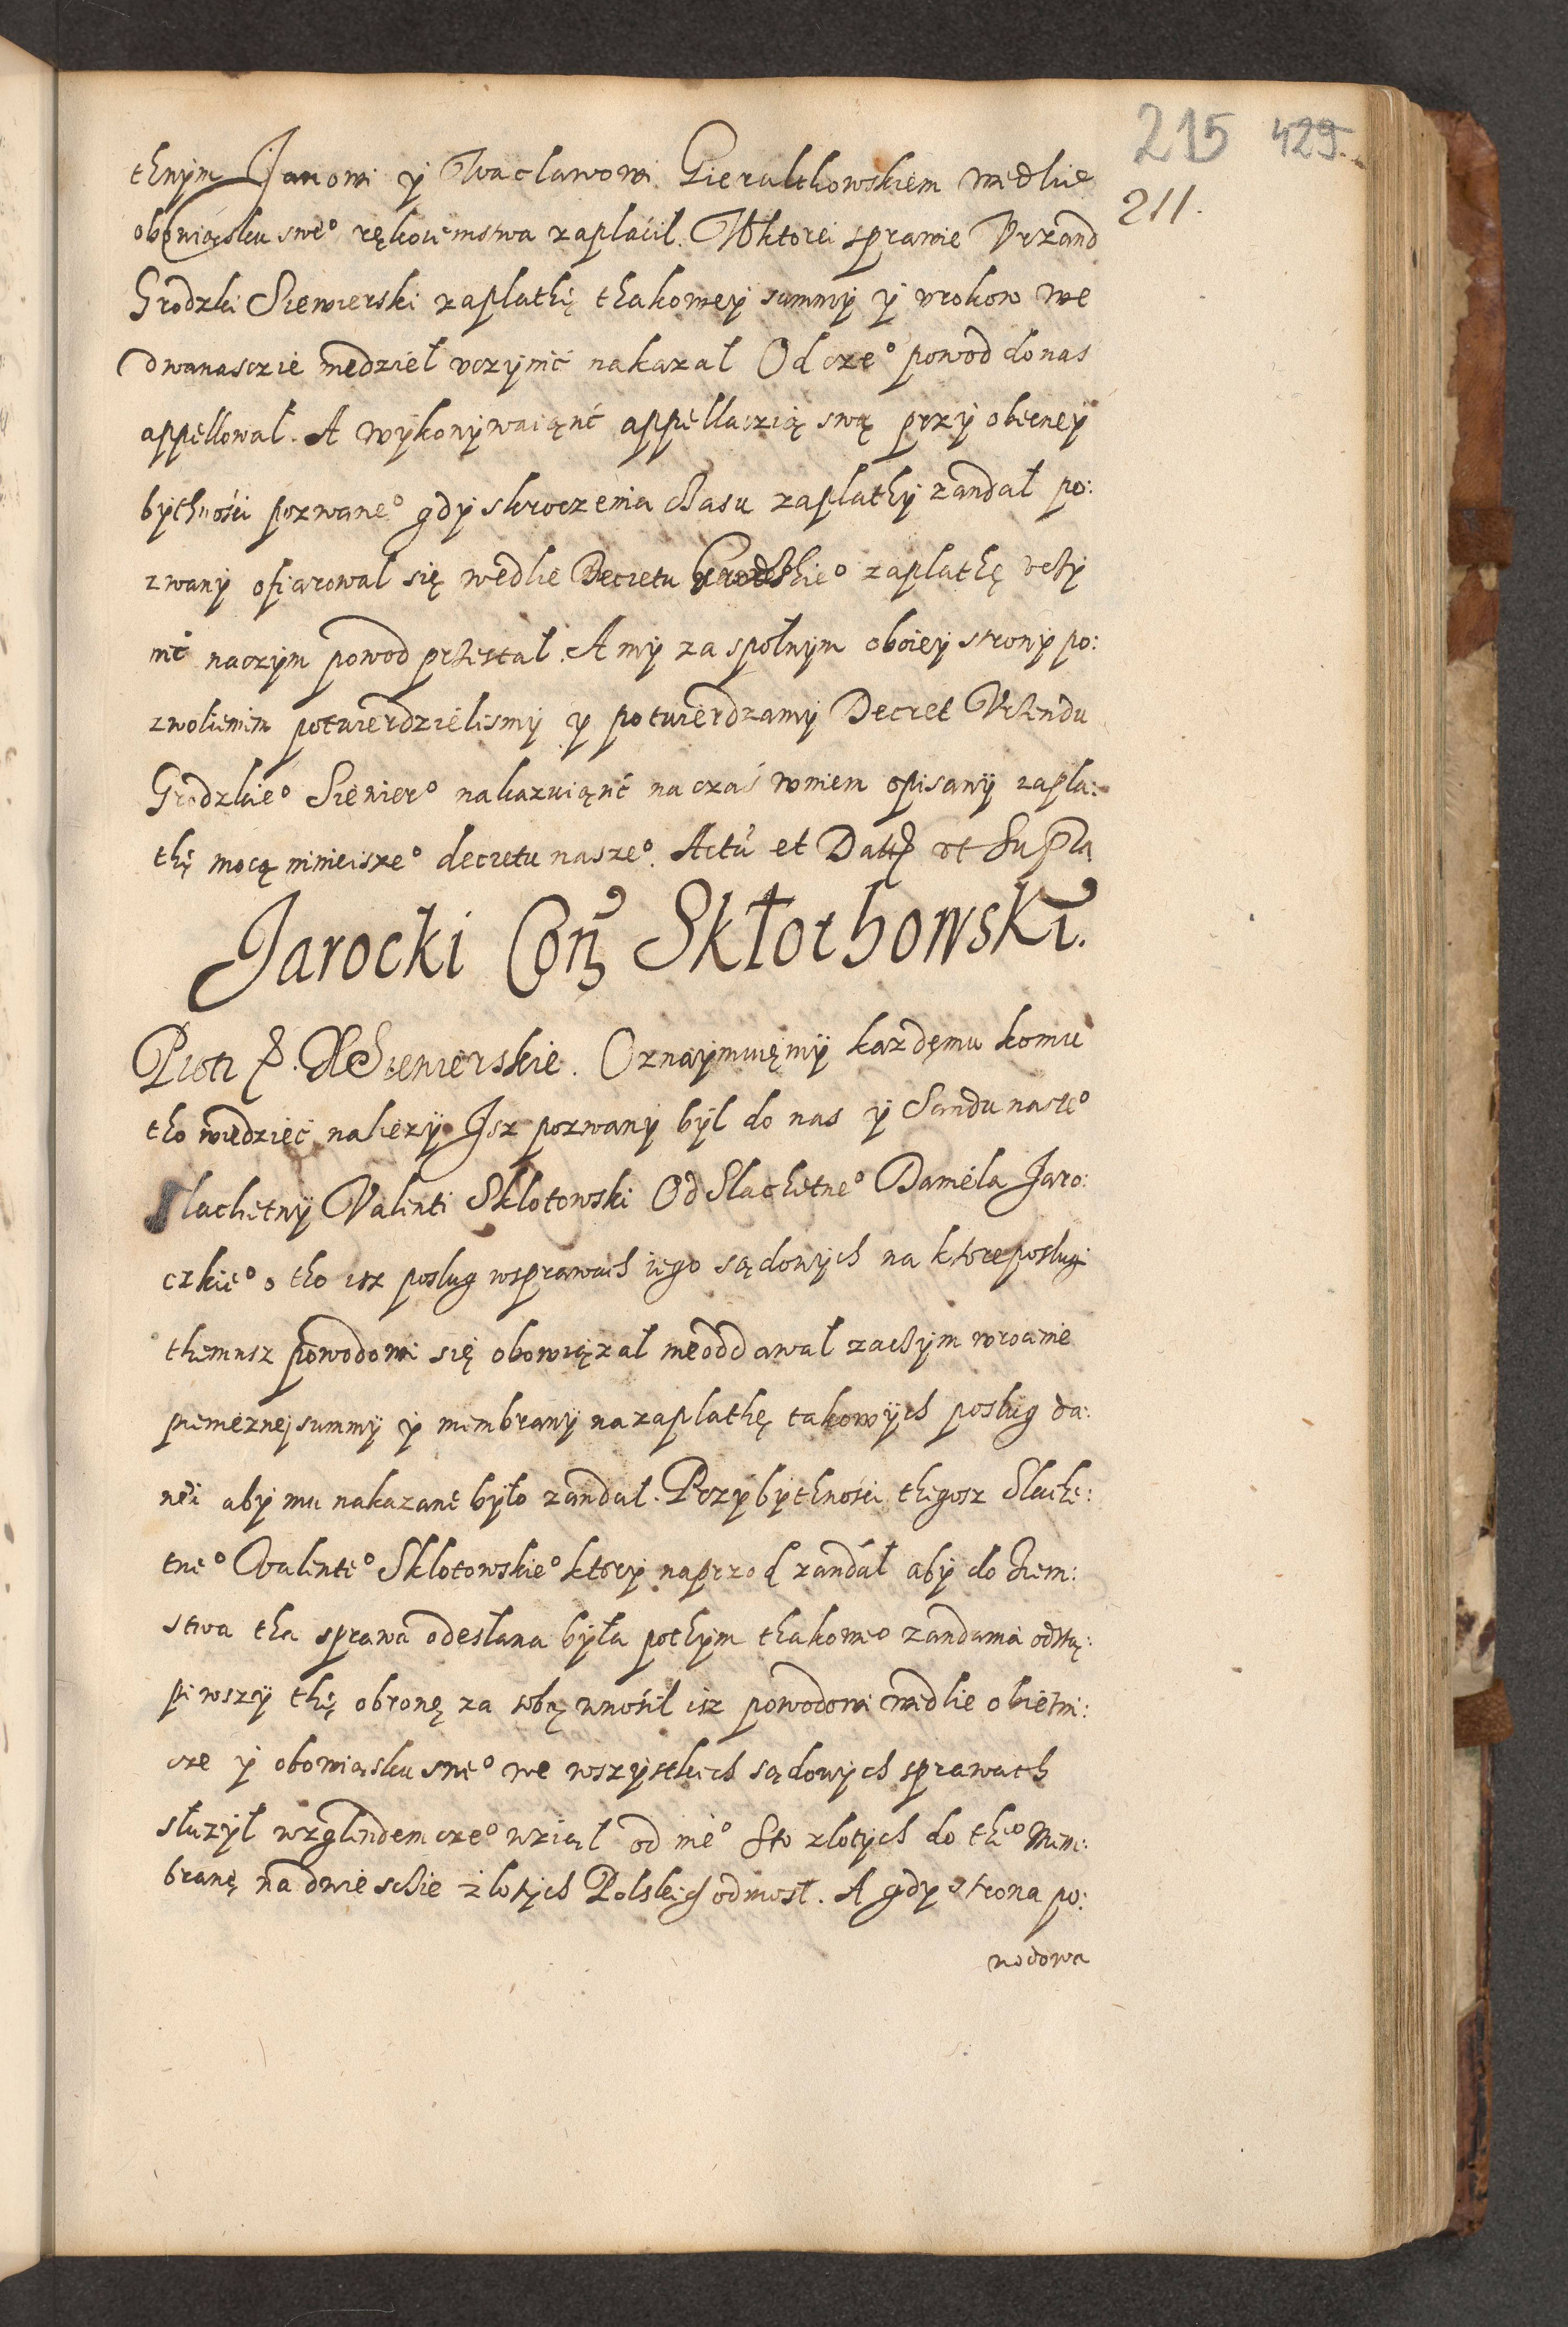 215 429.
211.
thnym Janowi y Waclawowi Gieralthowskiem wedlie
obowiąsku swe° rękoiemstwa zaplacil. Wktorei sprawie Vrzand
Grodzki Siewierski zaplathę thakowey summy y vrokow we
dwanasczie niedziel vczynić nakazal Od cze° powod do nas
appellowal. A wykonywaiąnć appellaczią swą przy obecney
bythności pozwane° gdy skroczenia czasu zaplathy żandał po:
zwany ofiarowal się wedlie Decretu Grodzkie° zaplathę vczy
nić naczym powod przestał. A my za społnym oboiey strony po:
zwolieniem potwierdzielismy y potwierdzamy Decret Vrzendu
Grodzkie° Siewier° nakazuiąnć na czas wniem opisany zapla:
thę mocą miniejsze° decretu nasze°. Actu et Datum vt Supra
Jarocki Con Skłothowski.
Piotr X Siewierskie. Oznaymuięmy każdęmu komu
tho wiedzieć nalieży Isz pozwany był do nas y Sandu nasze°
Slachetny Valenti Sklotowski Od Slachetne° Daniela Jaro:
czkie° o tho isz poslug wsprawach iego sądowych na ktore poslugi
themusz powodowi się obowiązał nieoddawał zaczym wrocenie
pienieżnej summy y membrany na zaplathę takowych poslug da:
nei aby mu nakazane było żandał. Przy bythności thegosz Slache:
tne° Valente° Sklotowskie° ktory naprzod żandał aby do Ziem:
stwa tha sprawa odesłana była pothym thakowe° żandania odstą:
piwszy thę obronę za sobą wnosił isz powodowi wedlie obietni:
cze y obowiąsku swe° we wszystkich sądowych sprawach
służył wzglendem cze° wział od nie° Sto zlotych do the° Mem:
branę na dwie scie zlotych Polskich odniosł. A gdy strona po:
wodowa